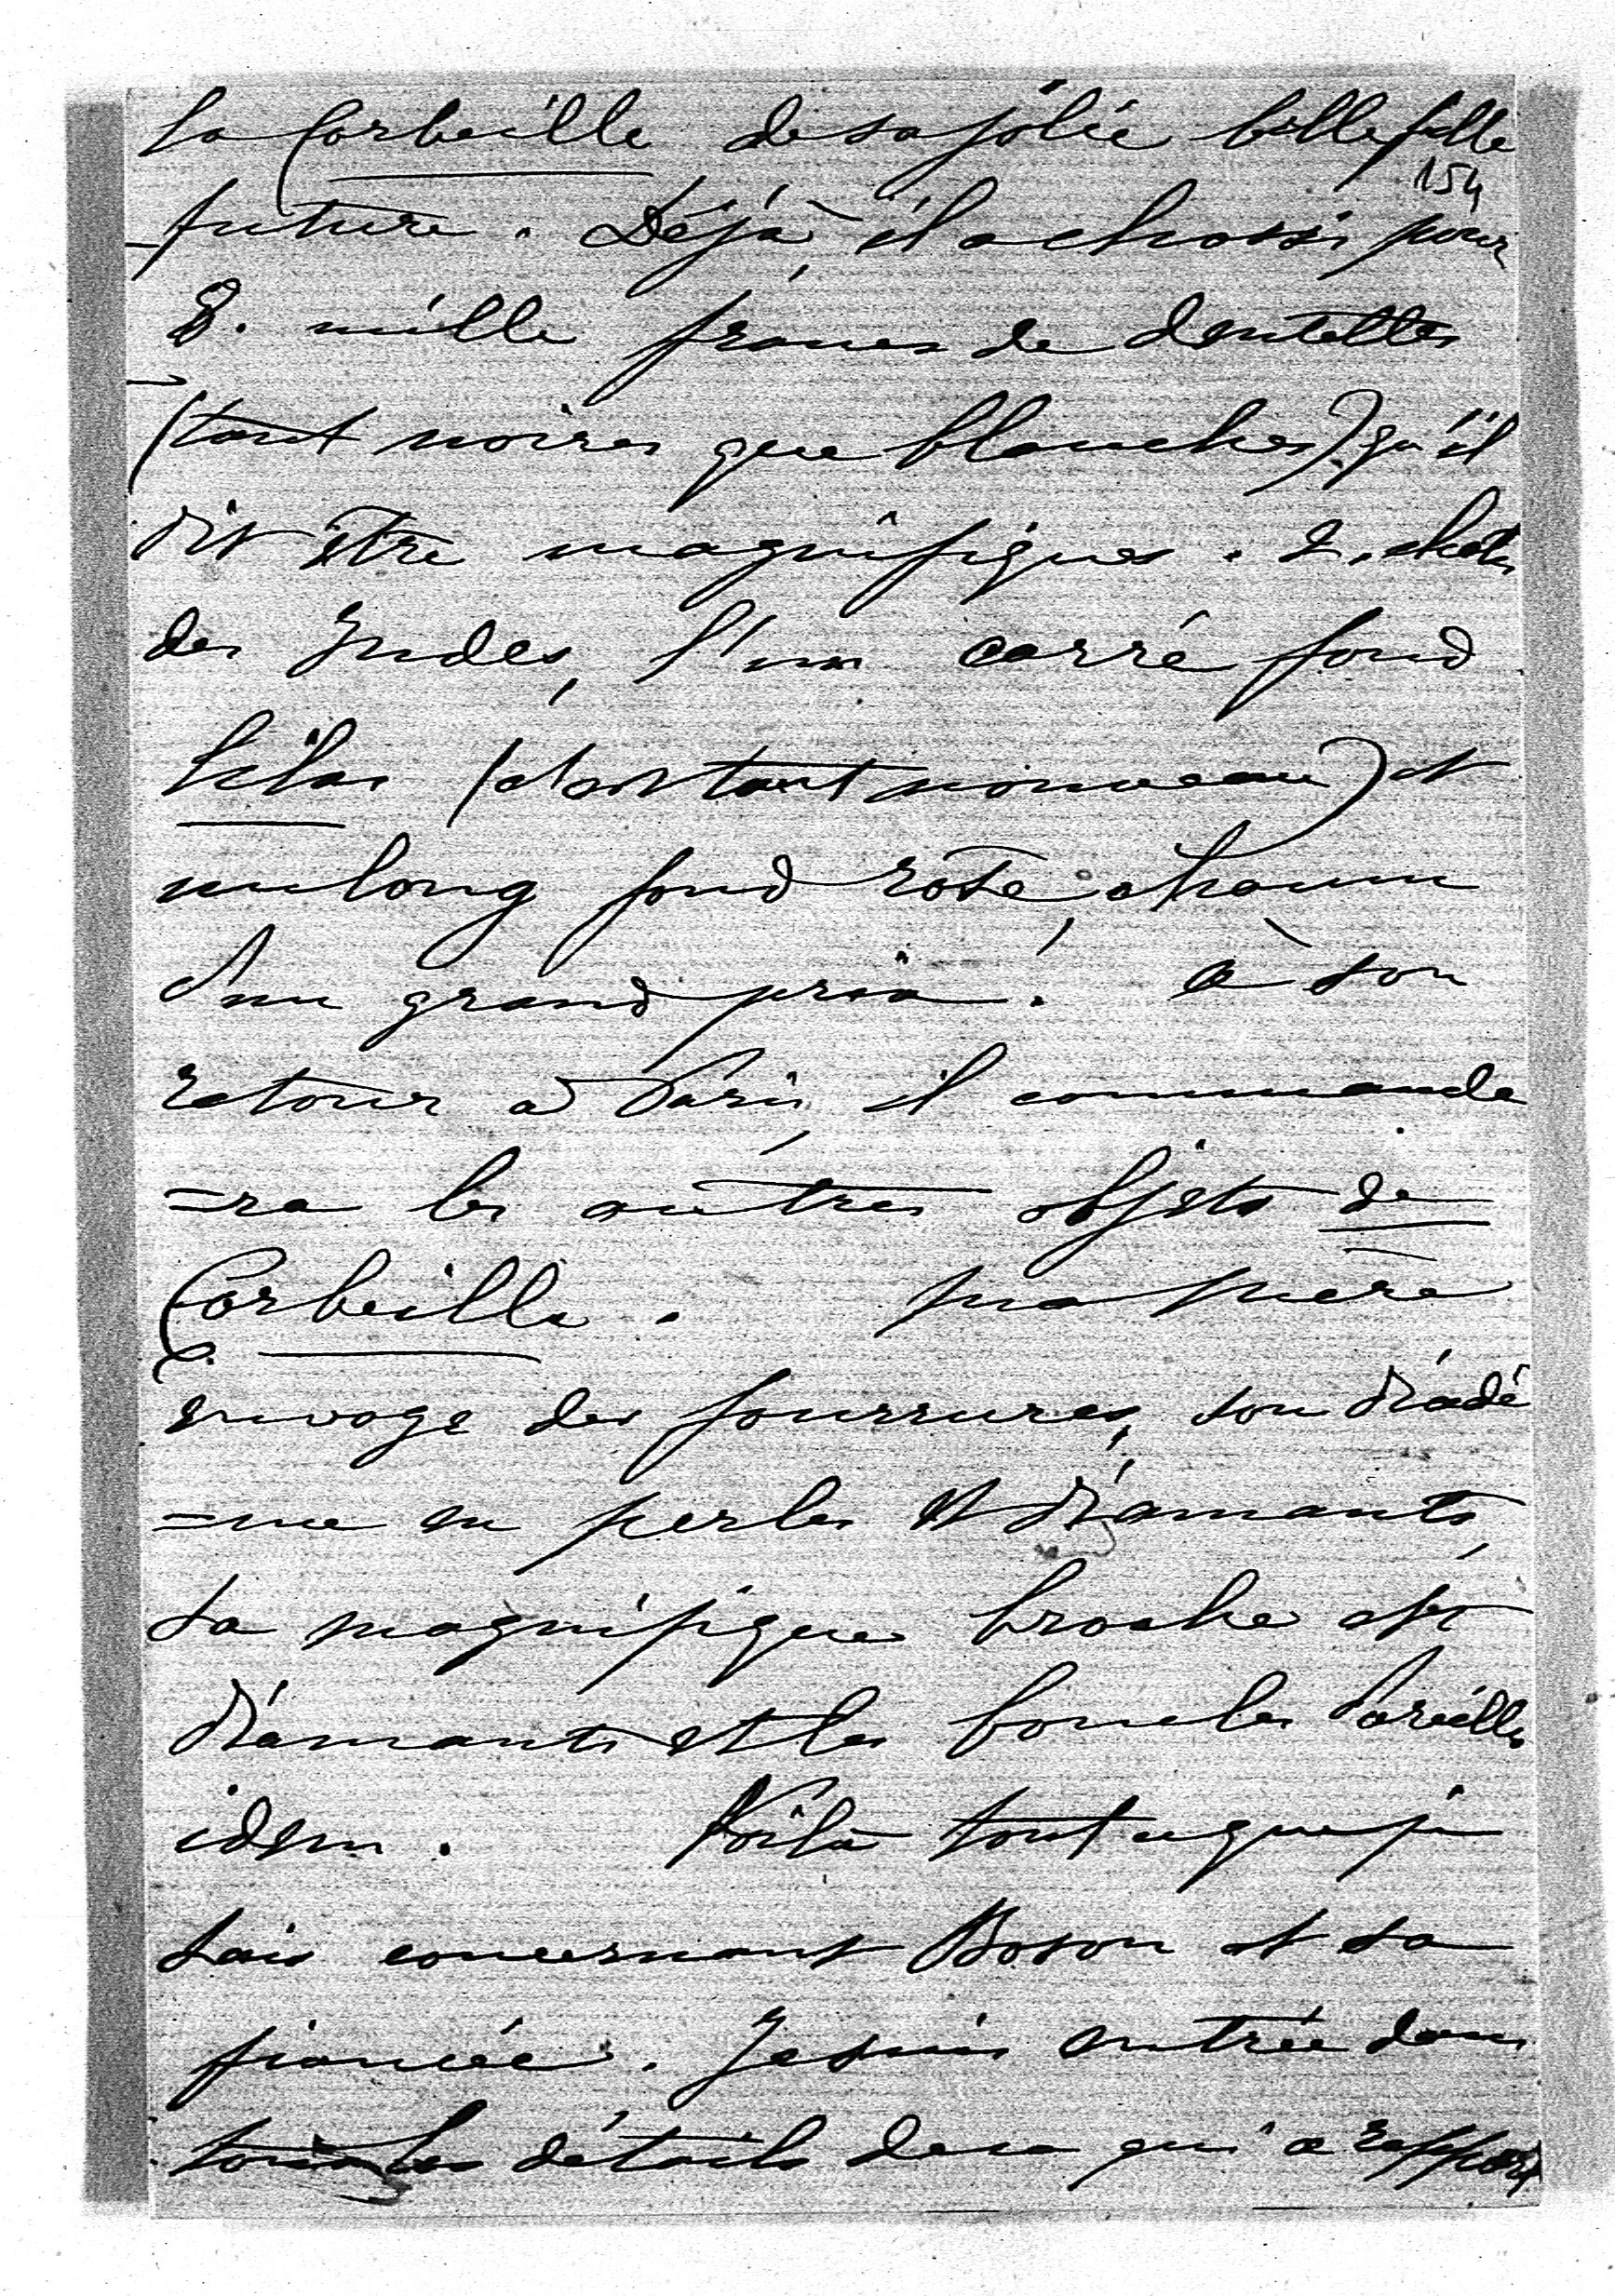 la Corbeille de sa jolie belle fille
154
future. Déjà, il a choisi pour
8. mille francs de dentelles
(tant noires que blanches) qu'il
dit être magnifiques. 2. châles
des Indes, l'un carré fond
lilas (c'est tout nouveau) et
un long fond rose, chacun
d'un grand prix. à son
retour à Paris, il commande
=ra les autres objets de
Corbeille. ma mère
envoye des fourrures, son diadè
=me en perles et diamants,
sa magnifique broche et
diamants et les boucles d'oreilles
idem. Voilà tout ce que je
sais concernant Boson et sa
fiancée. Je suis entrée dans
tous les détails de ce qui a rapport